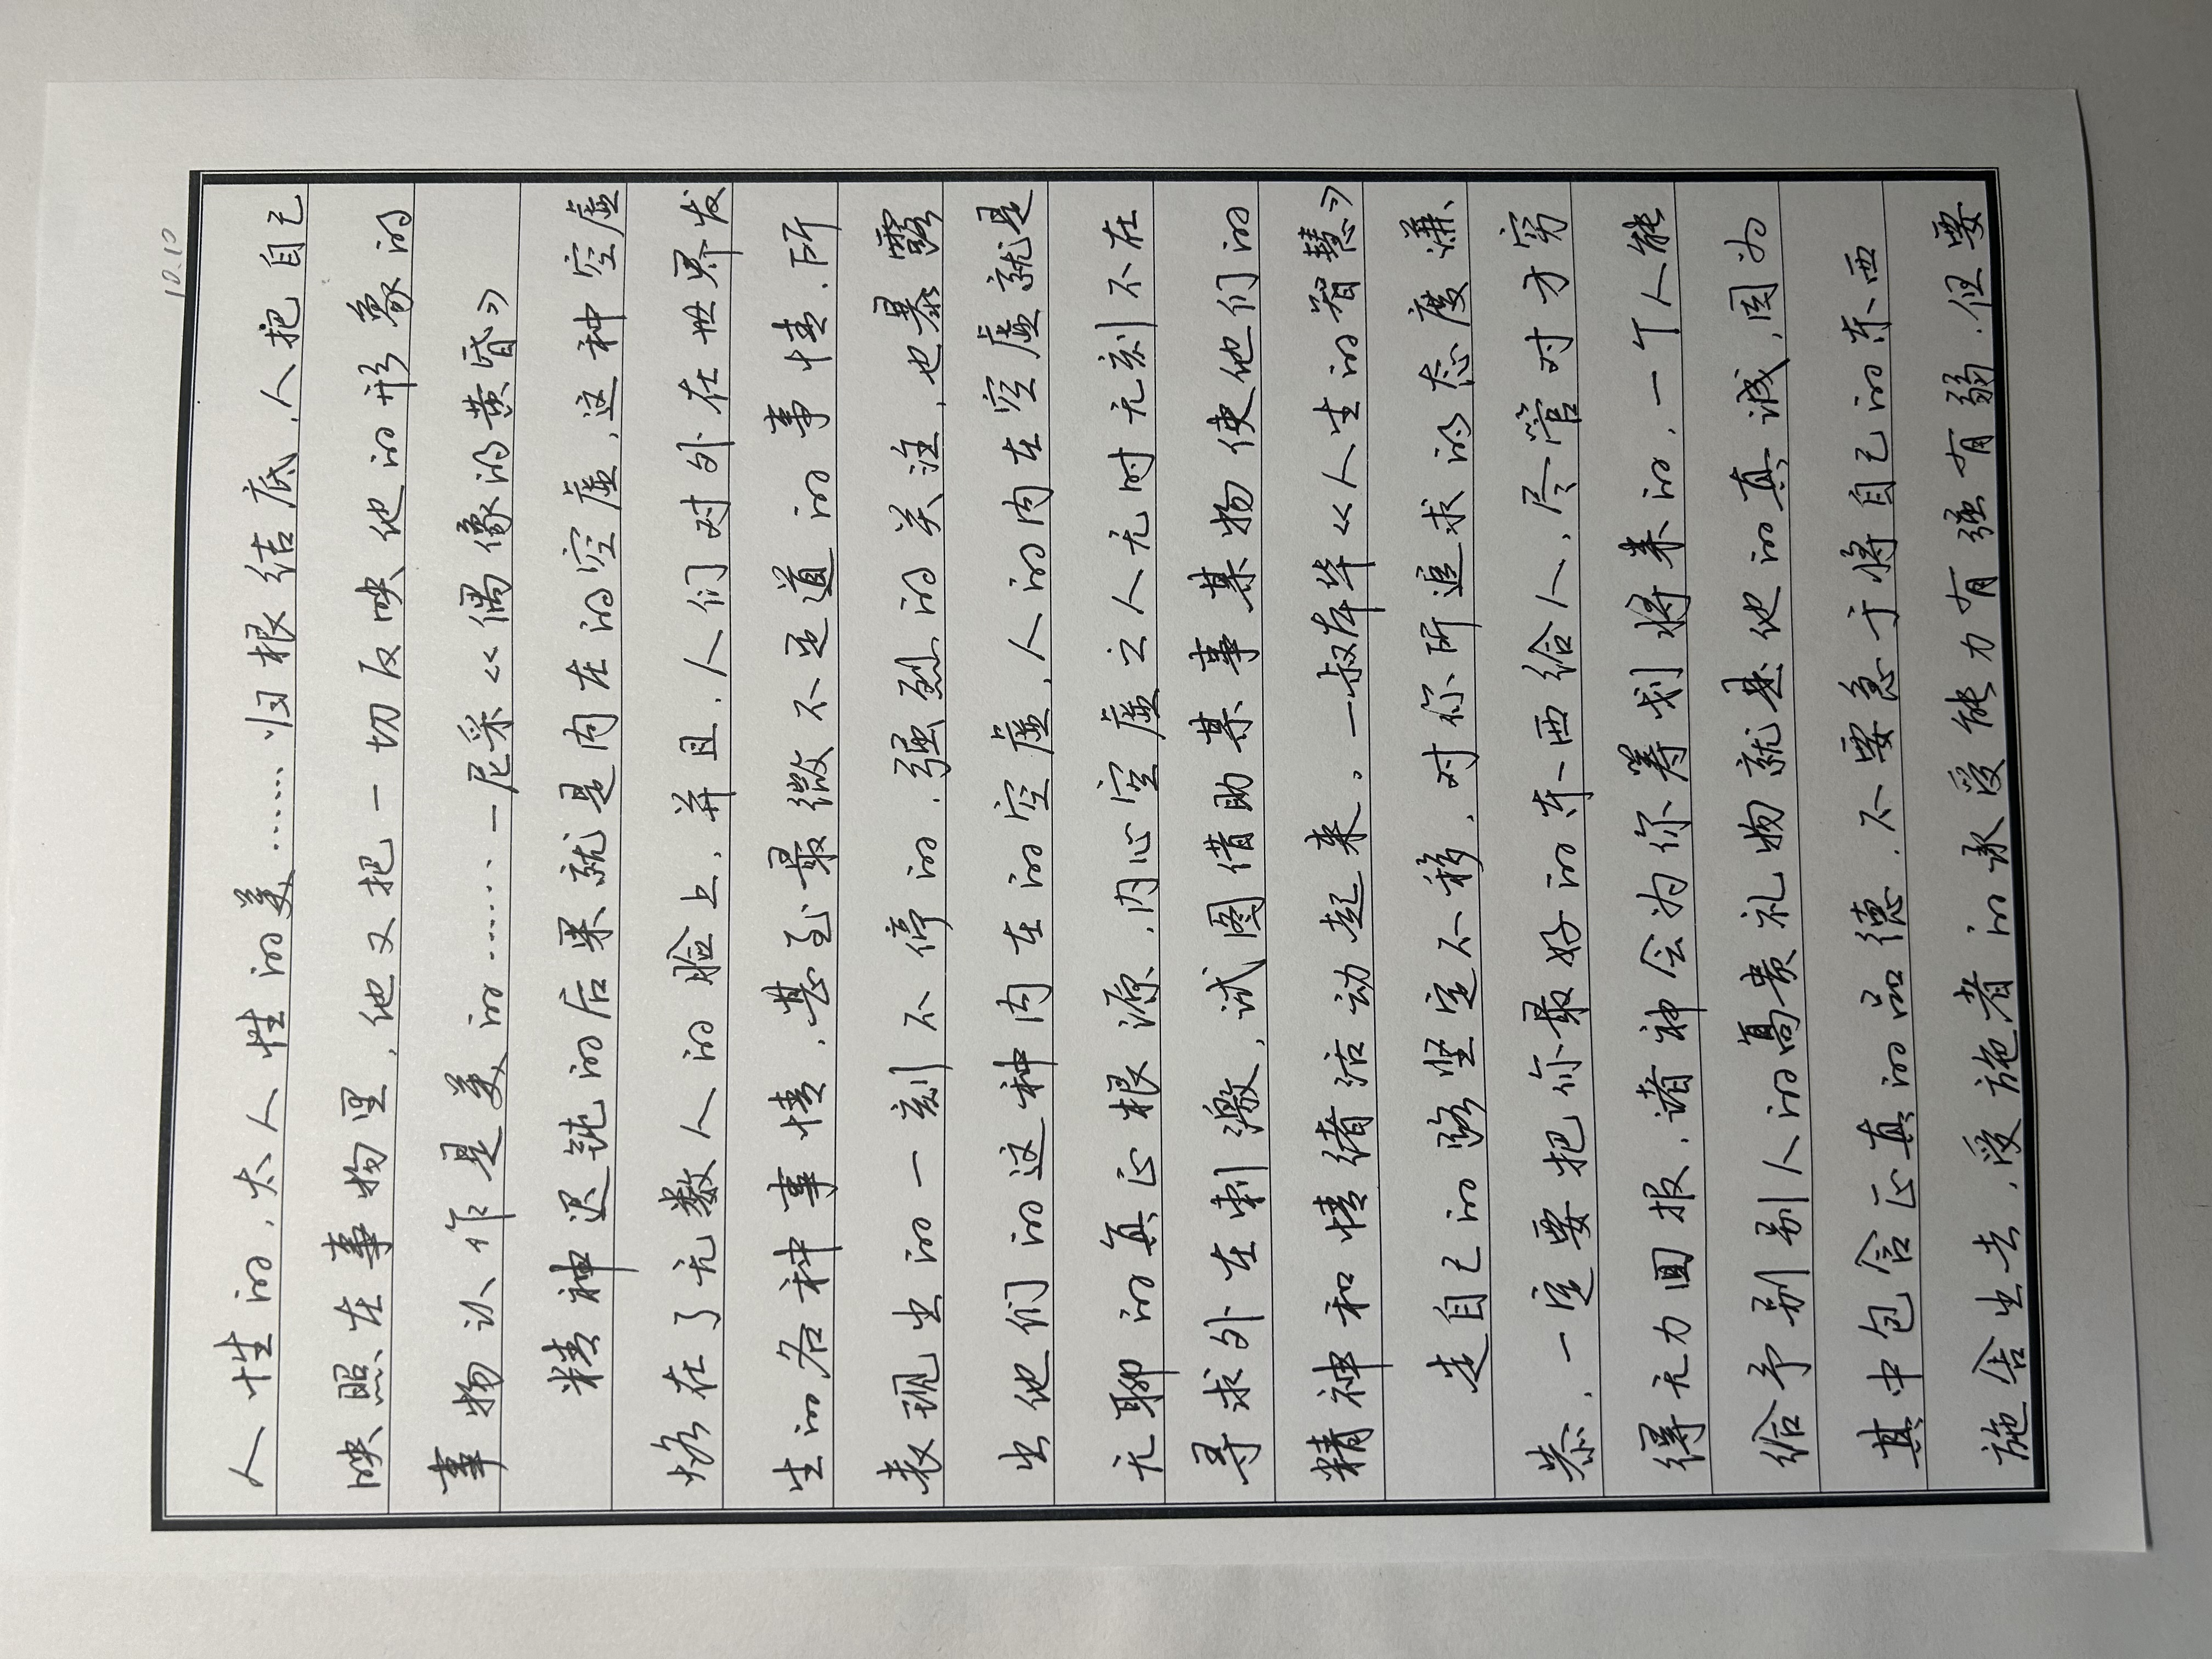 10.10
人性的，太人性的美……归根结底，人把自己
映照在事物里，他又把一切反映他的形象的
事物认作是美的……—尼采《偶像的黄昏》
精神迟钝的后果就是内在的空虚，这种空虚
烙在了无数人的脸上，并且，人们对外在世界发
生的各种事情，甚至最微不足道的事情，所
表现出的一刻不停的，强烈的关注，也暴露
出他们的这种内在的空虚，人的内在空虚就是
无聊的真正根源，内心空虚之人无时无刻不在
寻求外在刺激，试图借助某事某物使他们的
精神和情绪活动起来。—叔本华《人生的智慧》
走自己的路坚定不移，对你所追求的态度谦
恭，一定要把你最好的东西给人，尽管对方穷
得无力回报，诸神会为你筹划将来的，一个人能
给予别别人的高贵礼物就是他的真诚，因为
其中包含正真的品德，不要急于将自己的东西
施舍出去，受施者的承受能力有强有弱，但要